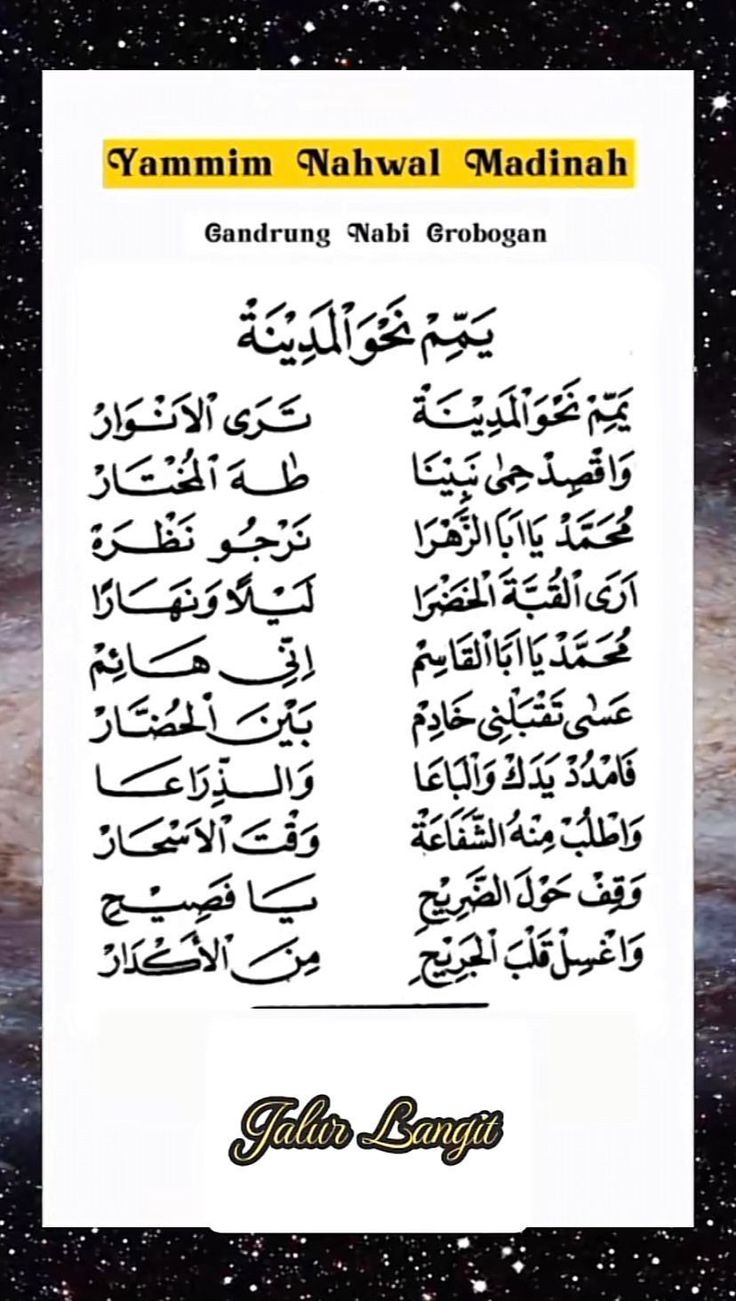 Yammim Nahwal Madinah
Gandrung Nabi Grobogan
يَمِّمْ نَحْوَ الْمَدِيْنَةْ
يَمِّمْ نَحْوَ الْمَدِيْنَةْ تَرَى الْاَنْوَارْ
وَاقْصِدْ حِمٰى نَبِيْنَا طٰهَ الْمُخْتَارْ
مُحَمَّدْ يَا اَبَا الزَّهْرَا نَرْجُو نَظْرَةْ
اَرَى الْقُبَّةَ الْخَضْرَا لَيْلًا وَنَهَارًا
مُحَمَّدْ يَا اَبَا الْقَاسِمْ اِنِّي هَائِمْ
عَسٰى تَقْبَلْنِى خَادِمْ بَيْنَ الْحُضَّارْ
فَامْدُدْ يَدَكْ وَالْبَاعَا وَالذِّرَاعَا
وَاطْلُبْ مِنْهُ الشَّفَاعَةْ وَقْتَ الْاَسْحَارْ
وَقِفْ حَوْلَ الضَّرِيْحِ يَا فَصِيْحِ
وَاغْسِلْ قَلْبَ الْجَرِيْحِ مِنَ الْأَكْدَارْ
Jalur Langit